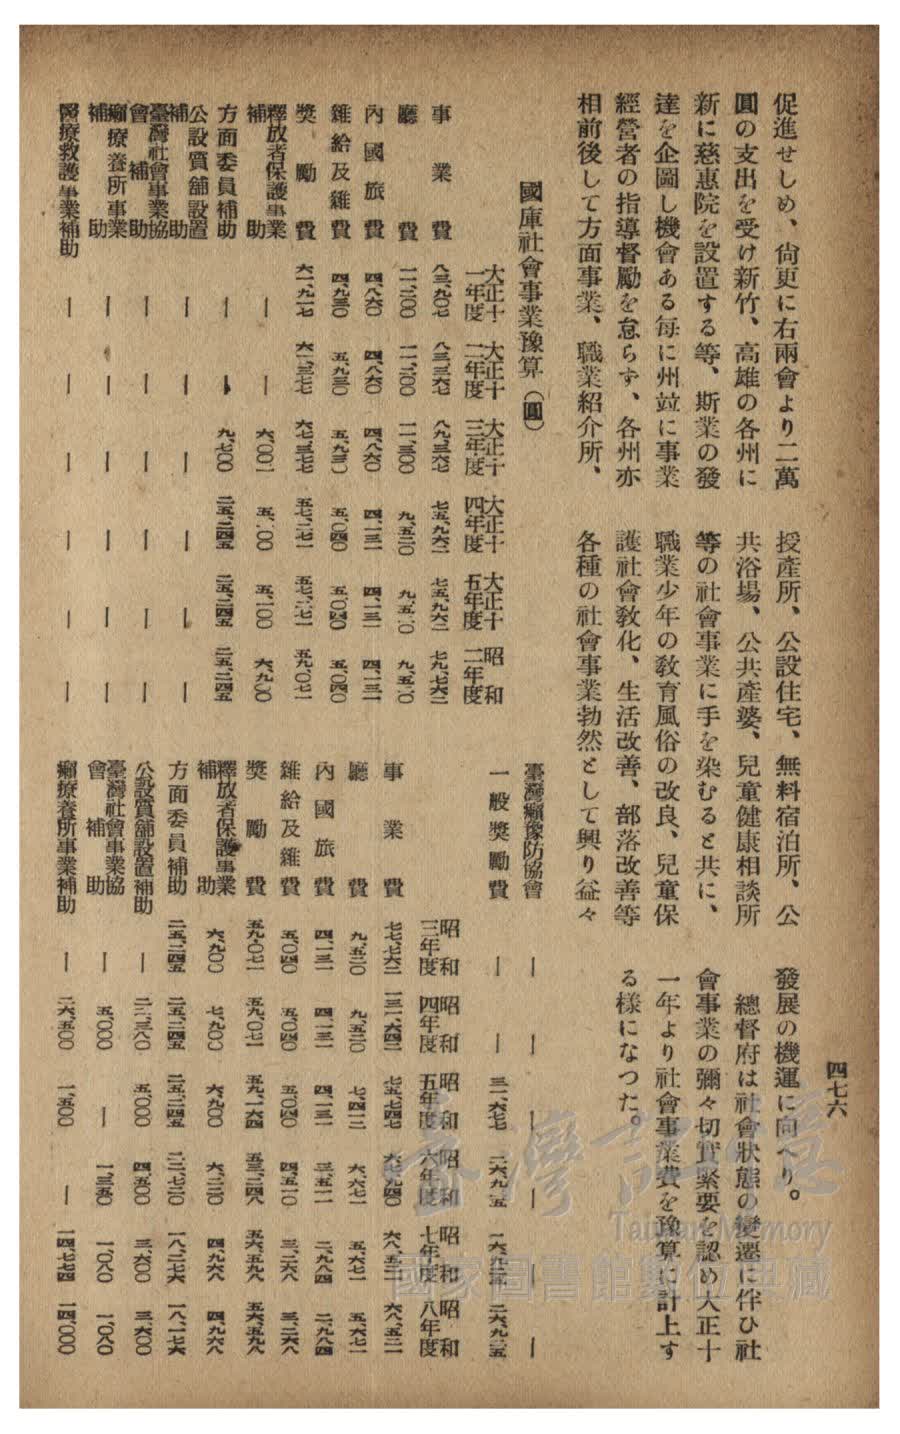 四七六
促進せしめ、尙更に右兩會より二萬
圓の支出を受け新竹、高雄の各州に
新に慈惠院を設置する等、斯業の發
達を企圖し機會ある每に州竝に事業
經營者の指導督勵を怠らず、各州亦
相前後して方面事業、職業紹介所、
授產所、公設住宅、無料宿泊所、公
共浴場、公共產婆、兒童健康相談所
等の社會事業に手を染むると共に、
職業少年の敎育風俗の改良、兒童保
護社會敎化、生活改善、部落改善等
各種の社會事業勃然として興り益々
發展の機運に向へり。
總督府は社會狀態の變遷に伴ひ社
會事業の彌々切實緊要を認め大正十
一年より社會事業費を豫算に計上す
る樣になつた。
國庫社會事業豫算(圓)
大正十一年度 大正十二年度 大正十三年度 大正十四年度 大正十五年度 昭和二年度
事業費 八三、九〇七 八三、三六七 八九、三六七 七五、九六二 七五、九六二 七九、七六二
廳費 一一、三〇〇 一一、三〇〇 九、五二〇
內國旅費 四、八六〇 四、八六〇 四、八六〇 四、一三一 四、一三一 四、一三一
雜給及雜費 五、九三〇 五、九三〇 五、〇四〇 五、〇四〇 五、〇四〇
獎勵費 六一、九一七 六一、三七七 六七、三七七 五七、二七一 五七、二七一 五九、〇七一
釋放者保護事業補助 — — 六、〇〇一 五、一〇〇 五、一〇〇 六、九〇〇
方面委員補助 — — 九、七〇〇 二五、二四五 二五、二四五 二五、二四五
公設質舖設置補助 — — — — — —
臺灣社會事業協會補助 — — — — — —
癩療養所事業補助 — — — — — —
醫療救護事業補助 — — — — — —
臺灣癩豫防協會 — — — — — —
一般獎勵費 — — 三一、六七七 二六、九二五 二六、九二五
昭和三年度 昭和四年度 昭和五年度 昭和六年度 昭和七年度 昭和八年度
事業費 七七、七六二 一三一、六四二 七五、七四七 六七、九四〇 六八、五二一 六八、五二一
廳費 九、五二〇 九、五二〇 七、四一二 六、六七一 五、六七一 五、六七一
內國旅費 四、一三一 四、一三一 四、一三一 三、五二一 二、九八四 二、九八四
雜給及雜費 五、〇四〇 五、〇四〇 五、〇四〇 四、五一〇 三、二六八 三、二六八
獎勵費 五九、〇七一 五九、〇七一 五九、一六四 五三、二四八 五六、五九八 五六、五九八
釋放者保護事業補助 六、九〇〇 七、九〇〇 六、九〇〇 六、二一〇 四、九六八 四、九六八
方面委員補助 二五、二四五 二五、二四五 二五、二四五 二二、七二〇 一八、一七六 一八、一七六
公設質舖設置補助 — 二一、三八〇 五、〇〇〇 四、五〇〇 三、六〇〇 三、六〇〇
臺灣社會事業協會補助 — 五、〇〇〇 — 一、三五〇 一、〇八〇 一、〇八〇
癩療養所事業補助 — 二六、五〇〇 一、五〇〇 — 一四、七七四 一四、〇〇〇
臺灣記憶
Taiwan Memory
國家圖書館數位典藏